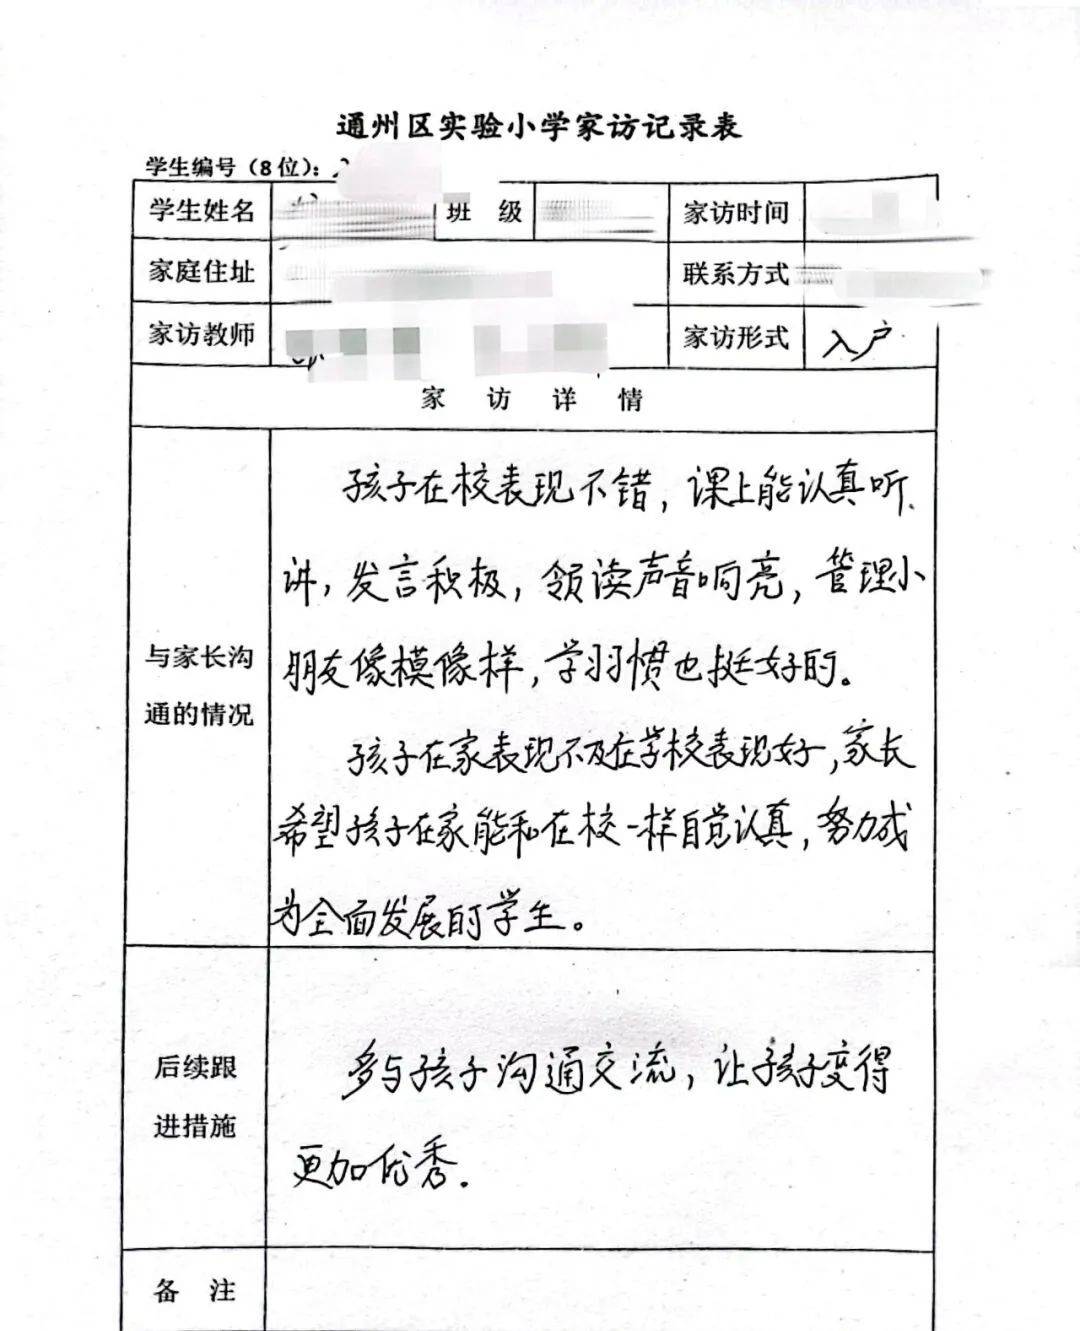 通州区实验小学家访记录表
学生编号（8位）：
学生姓名 班 级 家访时间
家庭住址 联系方式
家访教师 家访形式 入户
家 访 详 情
与家长沟
通的情况
孩子在校表现不错，课上能认真听
讲，发言积极，领读声音响亮，管理小
朋友像模像样，学习惯也挺好的。
孩子在家表现不及在学校表现好，家长
希望孩子在家能和在校一样自觉认真，努力成
为全面发展的学生。
后续跟
进措施
多与孩子沟通交流，让孩子变得
更加优秀.
备 注